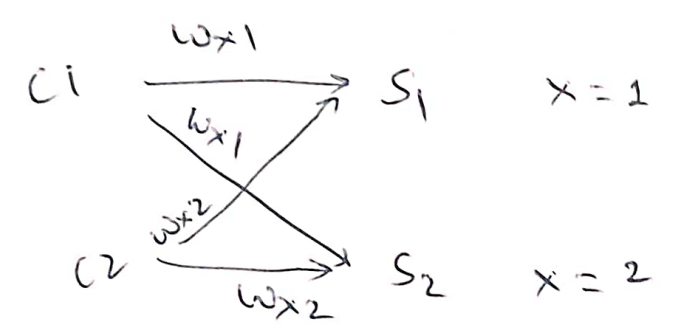 Wx1
C1 S1 x = 1
Wx1
Wx2
C2 S2 x = 2
Wx2